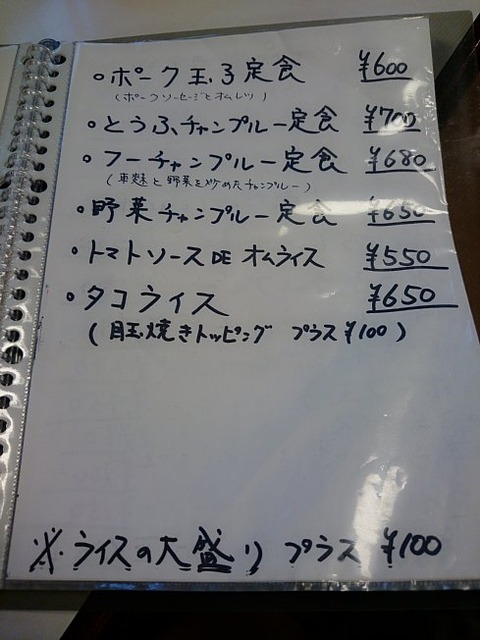 ・ポーク玉子定食 ¥600
(ポークソーセージとオムレツ)
・とうふチャンプルー定食 ¥700
・フーチャンプルー定食 ¥680
(車麩と野菜を炒めたチャンプルー)
・野菜チャンプルー定食 ¥650
・トマトソースDEオムライス ¥550
・タコライス ¥650
(目玉焼きトッピング プラス¥100)
※.ライスの大盛り プラス ¥100